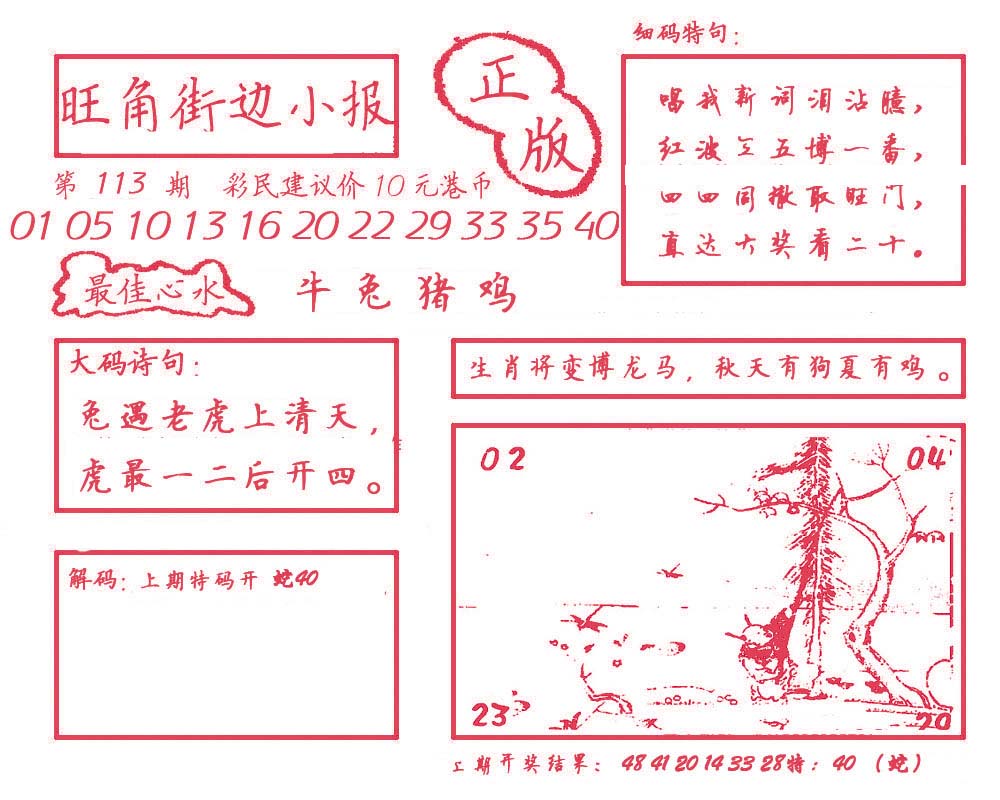 旺角街边小报
正版
第 113 期 彩民建议价 10 元港币
01 05 10 13 16 20 22 29 33 35 40
最佳心水 牛兔猪鸡
细码特句：
唱我新词泪沾臆，
红波 五博一番，
四四同撒取旺门，
直达大奖看二十。
大码诗句：
兔遇老虎上清天，
虎最一二后开四。
生肖将变博龙马，秋天有狗夏有鸡。
解码：上期特码开 蛇40
02
04
23
20
上期开奖结果：48 41 20 14 33 28特：40（蛇）